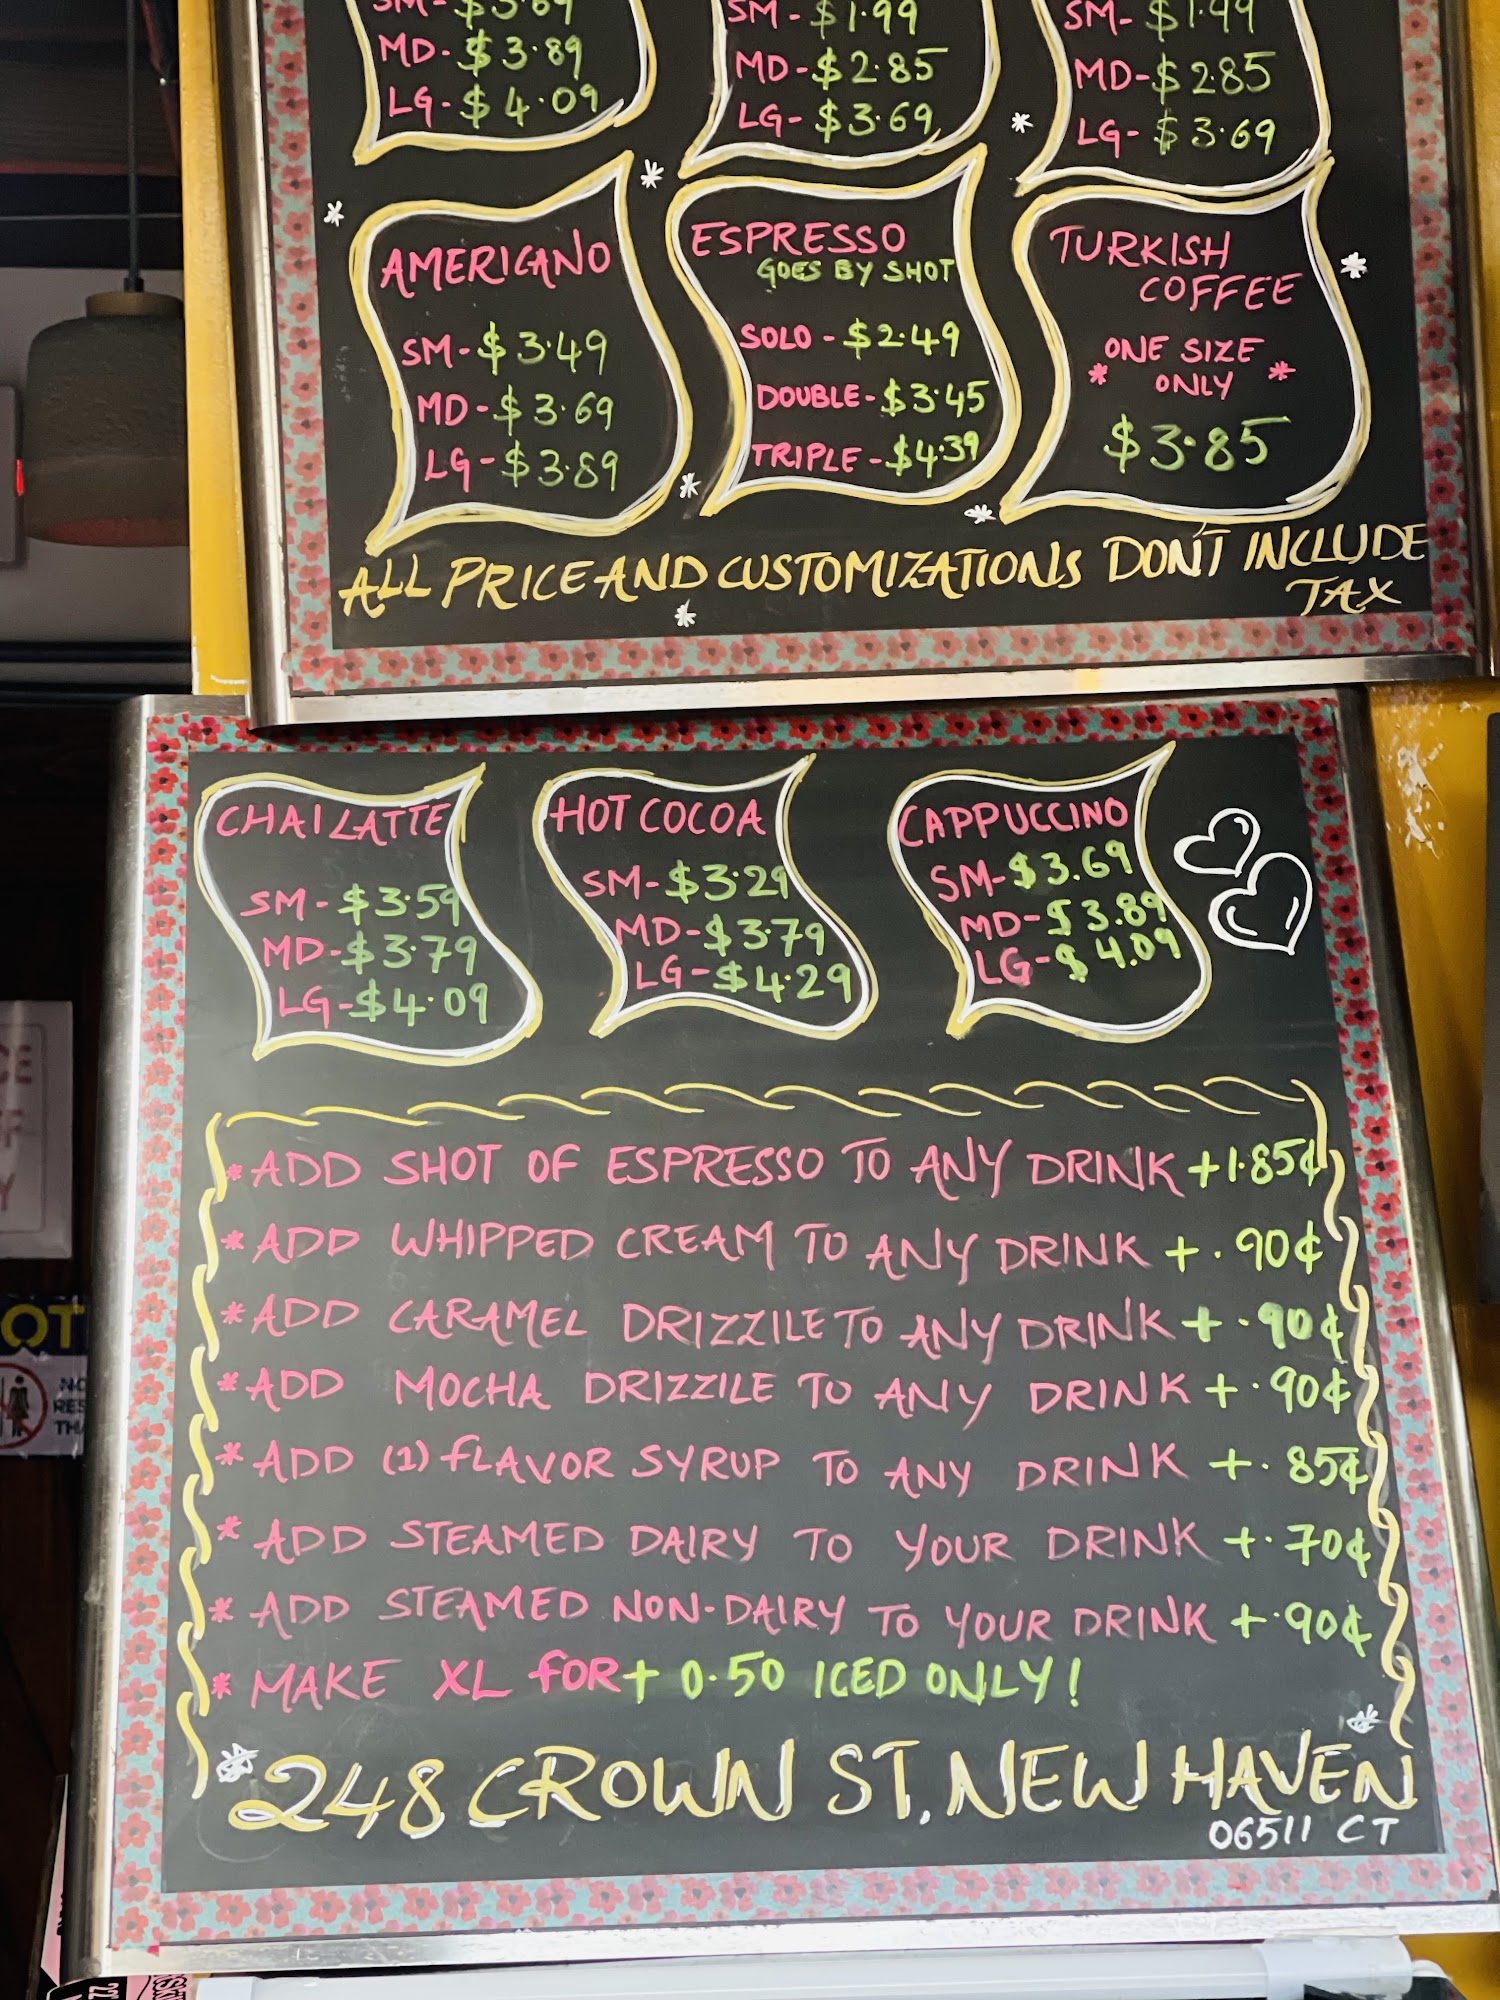 SM-$3.69
MD-$3.89
LG-$4.09
SM-$1.99
MD-$2.85
LG-$3.69
SM-$1.99
MD-$2.85
LG-$3.69
AMERICANO
SM-$3.49
MD-$3.69
LG-$3.89
ESPRESSO
GOES BY SHOT
SOLO-$2.49
DOUBLE-$3.45
TRIPLE-$4.39
TURKISH
COFFEE
*ONE SIZE
ONLY*
$3.85
ALL PRICE AND CUSTOMIZATIONS DON'T INCLUDE
TAX
CHAI LATTE
SM-$3.59
MD-$3.79
LG-$4.09
HOT COCOA
SM-$3.29
MD-$3.79
LG-$4.29
CAPPUCCINO
SM-$3.69
MD-$3.89
LG-$4.09
*ADD SHOT OF ESPRESSO TO ANY DRINK +1.85¢
*ADD WHIPPED CREAM TO ANY DRINK +.90¢
*ADD CARAMEL DRIZZILE TO ANY DRINK +.90¢
*ADD MOCHA DRIZZILE TO ANY DRINK +.90¢
*ADD (1) FLAVOR SYRUP TO ANY DRINK +.85¢
*ADD STEAMED DAIRY TO YOUR DRINK +.70¢
*ADD STEAMED NON-DAIRY TO YOUR DRINK +.90¢
*MAKE XL FOR + 0.50 ICED ONLY!
248 CROWN ST, NEW HAVEN
06511 CT
OT